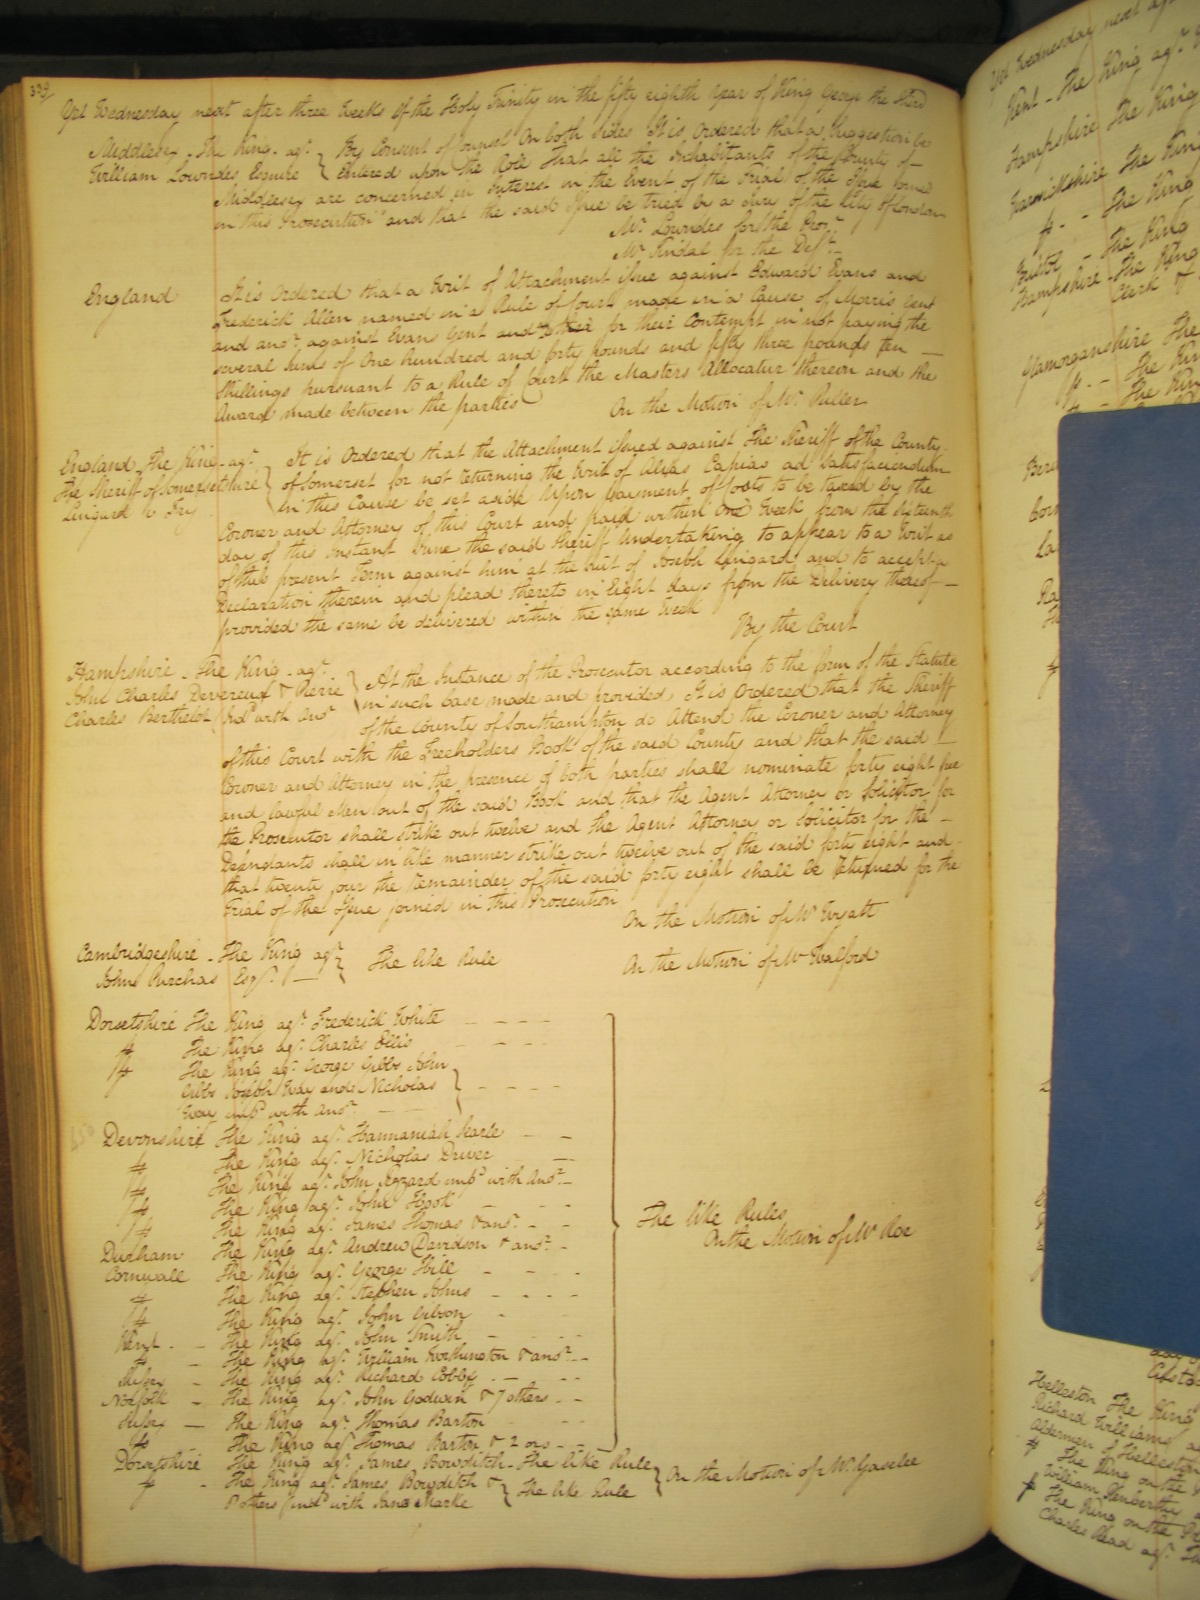 339
Yet Wednesday next after three Weeks of the Holy Trinity in the fifty eighth Year of King George the Third
Middlesex The King agt. } By Consent of Counsel On both sides It is Ordered that a Suggestion be
William Lowndes Esquire } entered upon the Roll That all the Inhabitants of the County of
Middlesex are concerned in Interest in the Event of the Trial of the Issue joined
in this Prosecution and that the said Issue be tried by a Jury of the City of London
Mr. Lowndes for the Pror.
Mr. Tindal for the Deft.
England It is Ordered that a Writ of Attachment Issue against Edward Evans and
Frederick Allen named in a Rule of Court made in a Cause of Morris Gent
and anor. against Evans Gent and for their Contempt in not paying the
several sums of One hundred and forty pounds and fifty three pounds ten
Shillings pursuant to a Rule of Court the Masters Allocatur thereon and the
Award made between the parties
On the Motion of Mr. Puller
England The King agt. } It is Ordered that the Attachment Issued against the Sheriff of the County
The Sheriff of Somersetshire } of Somerset for not returning the Writ of Alias Capias ad Satisfaciendum
Lingard v Ivy in this Cause be set aside Upon payment of Costs to be taxed by the
Coroner and Attorney of this Court and paid within One Week from the sixteenth
day of this Instant June the said Sheriff Undertaking to appear to a Writ as
of this present Term against him at the suit of Joseph Lingard and to accept a
Declaration therein and plead thereto in Eight days from the Delivery thereof
provided the same be delivered within the same Week
By the Court
Hampshire The King agt.
John Charles Devereux & Pierre } At the Instance of the Prosecutor according to the form of the Statute
Charles Berthelot impd with anor. } in such Case made and provided, It is Ordered that the Sheriff
of the County of Southampton do Attend the Coroner and Attorney
of this Court with the Freeholders Book of the said County and that the said
Coroner and Attorney in the presence of both parties shall nominate forty eight free
and lawful Men out of the said Book and that the Agent Attorney or Solicitor for
the Prosecutor shall strike out twelve and the Agent Attorney or Solicitor for the
Defendants shall in like manner strike out twelve out of the said forty eight and
that twenty four the remainder of the said forty eight shall be returned for the
Trial of the Issue joined in this Prosecution
On the Motion of Mr Wyatt
Cambridgeshire The King agt. } The like Rule On the Motion of Mr Walford
John Purchas Esqr. }
Dorsetshire The King agt. Frederick White
The King agt. Charles Ellis
The King agt. George Gibbs John
Gibbs Joseph Way and Nicholas
Way impd with anor.
Devonshire The King agt. Hannaniah Searle
The King agt. Nicholas Driver
The King agt. John Lizzard impd with anor.
The King agt. John Hook
The King agt. James Thomas & anor.
The like Rules
On the Motion of Mr Roe
Durham The King agt. Andrew Davidson & anor.
Cornwall The King agt. George Hill
The King agt. Stephen Johns
The King agt. John Gibson
Kent The King agt. John Smith
The King agt. William Worthington & anor.
The King agt. Richard Cobby
Norfolk The King agt. John Godwin & 7 others
Sussex The King agt. Thomas Barton
The King agt. Thomas Barton & 2 ors
Dorsetshire The King agt. James Bowditch The like Rule } On the Motion of Mr. Gaselee
The King agt. James Bowditch & } The like Rule
others impd with Jane Marke
Yet Wednesday next
Kent - The King agt.
Hampshire The King
Warwickshire The King
The King
Bristol - The King
Hampshire - The King
Clerk of
Glamorganshire The
The Kin
The Kin
Helleston The King
Richard Williams
Alderman of Helleston
The King on the
William Penberthy
The King on the Pr
Charles Read agt.